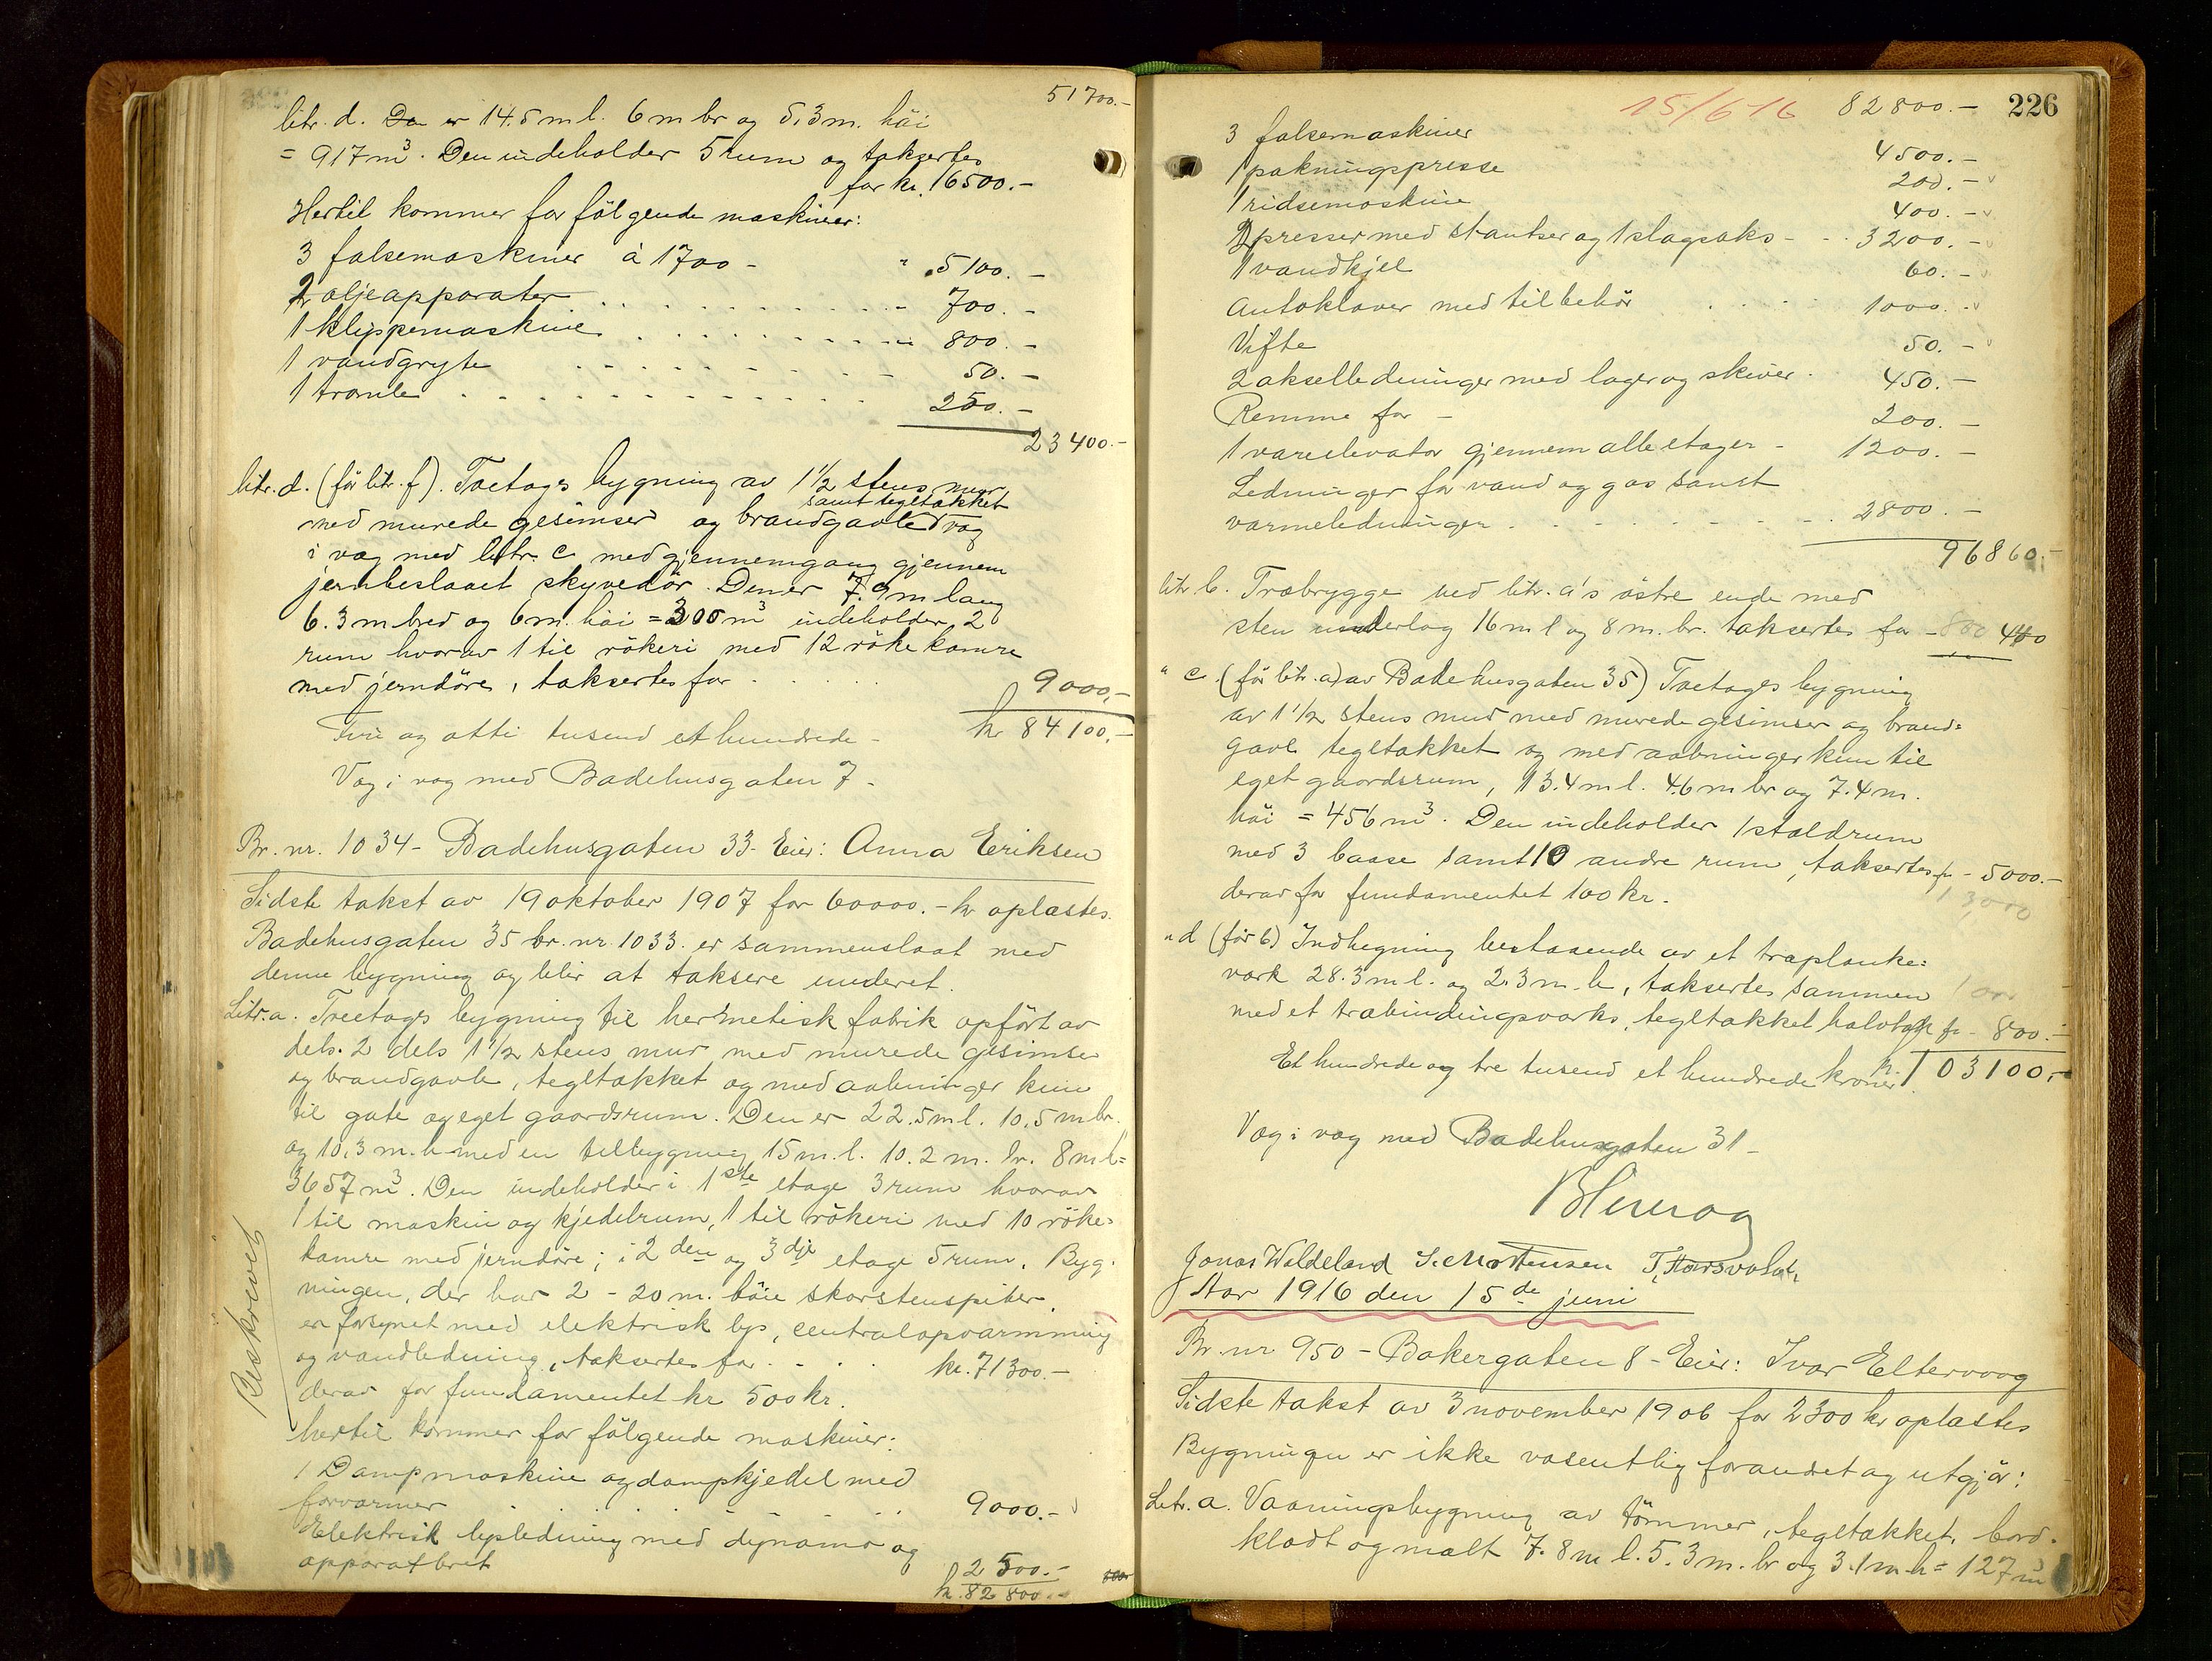 51700.-
litr. d. Den er 14.5 m l. 6 m br og 5,3 m. høi
= 917 m³. Den indeholder 5 rum og taksertes
for kr. 16500.-
Hertil kommer for følgende maskiner:
3 falsemaskiner à 1700 - " 5100.-
2 oljeapparater . . . . . . . . . . - 700.-
1 klippemaskine . . . . . . . . . 800.-
1 vandgryte . . . . . . . . . 50.-
1 tromle . . . . . . . . . . . . 250.-
23400.-
litr. d. (før litr. f). Toetages bygning av 1½ stens mur
samt tegltækket
med murede gesimser og brandgavle væg
i væg med litr. c med gjennemgang gjennem
jernbeslaaet skyvedør. Den er 7.9 m lang
6.3 m bred og 6 m. høi = 300 m³ indeholder 2
rum hvorav 1 til rökeri med 12 rökekamre
med jerndøre, taksertes for . . . . . 9000,-
kr 84100.-
Fire og otti tusend et hundrede -
Væg i væg med Badehusgaten 7 -
Br. nr. 1034 - Badehusgaten 33 - Eier: Anna Eriksen
Sidste takst av 19 oktober 1907 for 60000.- kr oplæstes.
Badehusgaten 35 br. nr. 1033 er sammenslaat med
denne bygning og blir at taksere under et.
Litr. a. Treetages bygning til hermetisk fabrik opført av
dels 2 dels 1½ stens mur med murede gesimser
og brandgavle, tegltækket og med aabninger kun
til gate og eget gaardsrum. Den er 22.5 m l. 10,5 m br.
og 10,3 m. h med en tilbygning 15 m. l. 10.2 m. br. 8 m h =
3657 m³. Den indeholder i 1ste etage 3 rum hvorav
1 til maskin og kjedelrum, 1 til rökeri med 10 röke-
kamre med jerndøre; i 2den og 3dje etage 5 rum. Byg-
ningen, der har 2 - 20 m. høie skorstenspiber,
er forsynet med elektrisk lys, centralopvarmning
og vandledning, taksertes for . . . . kr. 71300.-
derav for fundamentet kr 500 kr.
Beskrevet
hertil kommer for følgende maskiner:
1 Dampmaskine og dampkjedel med
forvarmer . . . . . . . . 9000.-
Elektrisk lysledning med dynamo og
apparatbret 2500.-
kr. 82800.-
15/6 16 82800.- 226
3 falsemaskiner 4500.-
1 pakningspresse 200.-
1 ridsemaskine 400.-
2 presser med stantser og 1 slagsaks - - 3200.-
1 vandkjel 60.-
Autoklaver med tilbehör . . . 1000.-
Vifte 50.-
2 akselledninger med lager og skiver . 450.-
Remme for - 200.-
1 vareelevator gjennem alle etager - 1200.-
Ledninger for vand og gas samt
varmeledninger . . . . . . . . . 2800.-
96860.-
litr b. Træbrygge ved litr. a's østre ende med
sten underlag 16 m l og 8 m. br. taksertes for - 440
" c. (før litr. a) av Badehusgaten 35) Toetages bygning
av 1½ stens mur med murede gesimser og brand-
gavl tegltækket og med aabninger kun til
eget gaardsrum, 13.4 m l. 4.6 m br og 7.4 m.
høi = 456 m³. Den indeholder 1 staldrum
med 3 baase samt 10 andre rum, taksertes for - 5000.-
derav for fundamentet 100 kr.
" d (før b) Indhegning bestaaende av et træplanke-
værk 28.3 m l. og 2.3 m. h, taksertes sammen
med et træbindingsværks, tegltækket halvtak for - 800.-
Et hundrede og tre tusend et hundrede kroner kr. 103100,-
Væg i væg med Badehusgaten 31 -
Jonas Weldeland S. Mortensen
Aar 1916 den 15de juni
Br. nr 950 - Bakergaten 8 - Eier: Ivar Eltervoog
Sidste takst av 3 november 1906 for 2300 kr oplæstes
Bygningen er ikke væsentlig forandret og utgjör:
Litr. a. Vaaningsbygning av tømmer, tegltækket, bord-
klædt og malt 7.8 m l. 5.3 m. br og 3.1 m h = 127 m³